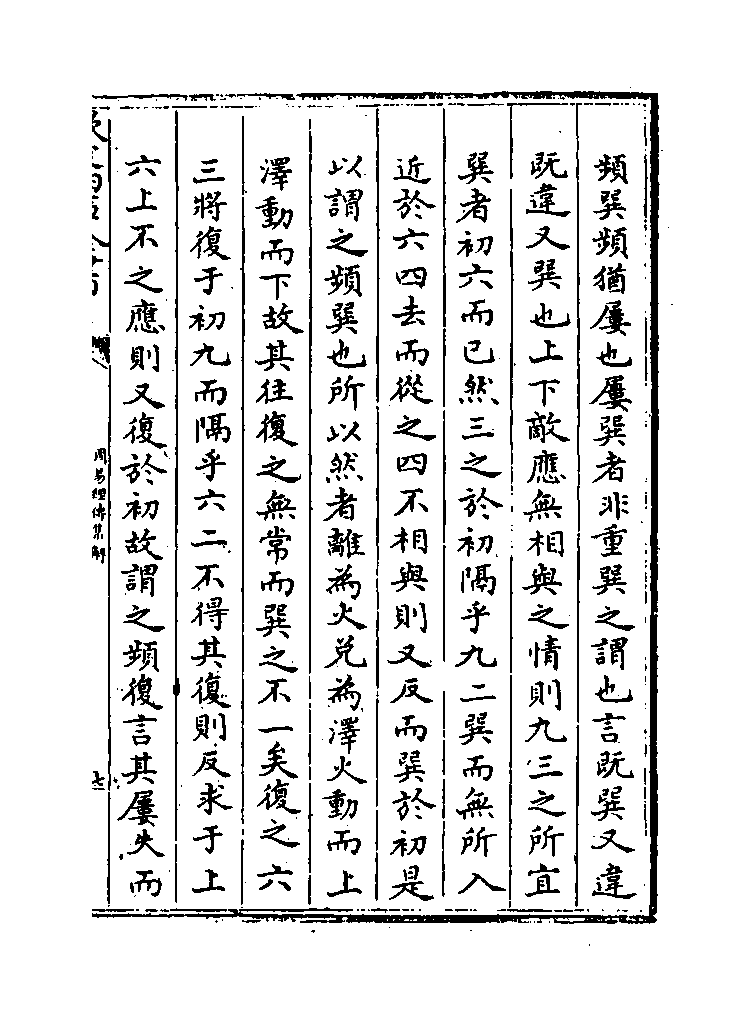 頻巽頻猶屢也屢巽者非重巽之謂也言既巽又違
既違又巽也上下敵應無相與之情則九三之所宜
巽者初六而已然三之於初隔乎九二巽而無所入
近於六四去而從之四不相與則又反而巽於初是
以謂之頻巽也所以然者離為火兌為澤火動而上
澤動而下故其往復之無常而巽之不一矣復之六
三將復于初九而隔乎六二不得其復則反求于上
六上不之應則又復於初故謂之頻復言其屢失而
周易經傳集解